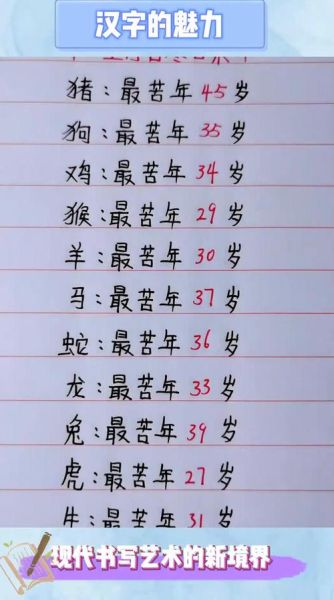 汉字的魅力
猪:最苦年45岁
狗:最苦年35岁
鸡:最苦年34岁
猴:最苦年29岁
羊:最苦年30岁
马:最苦年37岁
蛇:最苦年36岁
龙:最苦年33岁
兔:最苦年39岁
虎:最苦年27岁
牛:最苦年31岁
现代书写艺术的新境界